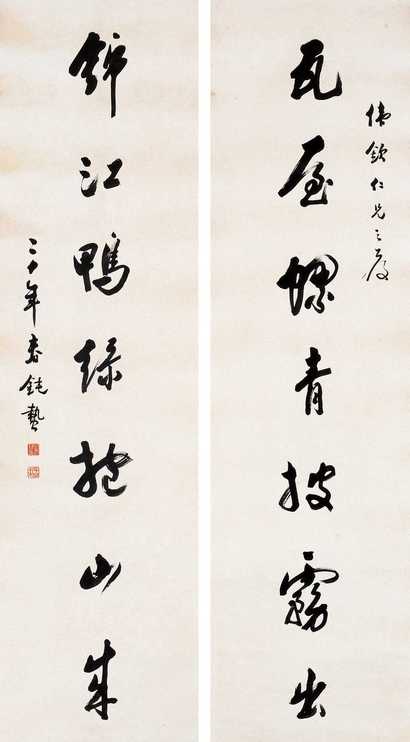 欽仁兄之
瓦屋螺青披霧出
錦江鴨綠抱山來
三十年春鈍